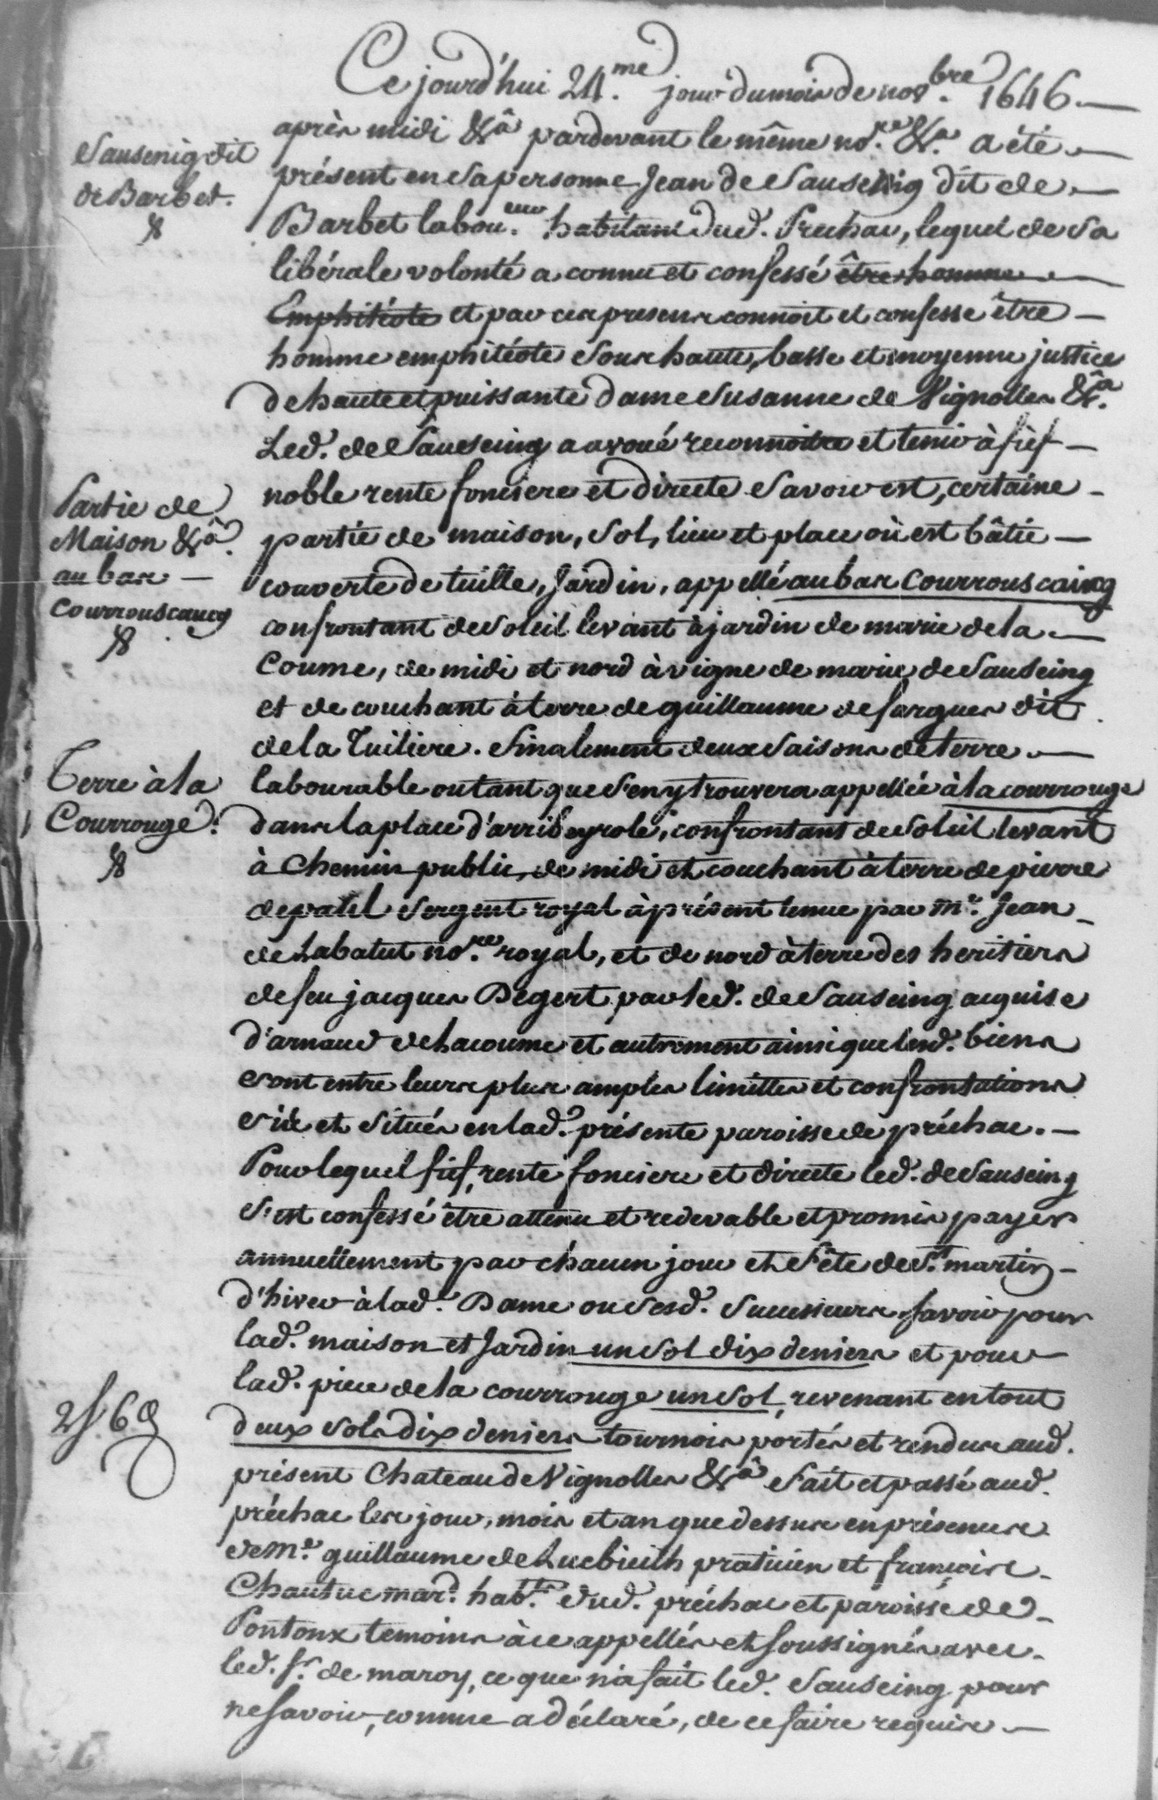 Ce jourd'hui 24.me jour du mois de nov.bre 1646
après midi &.a pardevant le même no.re &.a a été
Sausenig dit
de Barbet.
présent en sa personne Jean de Sausenig dit de
Barbet labou.eur habitant dud. Prechac, lequel de sa
libérale volonté a connu et confessé être homme
Emphitéote et par ces presens connoit et confesse être
homme emphitéote sous haute, basse et moyenne justice
de haute et puissante dame Susanne de Vignolles &.a
Led. de Sauseing a avoué reconnoitre et tenir à fief
noble rente fonciere et directe savoir est, certaine
Partie de
Maison &.a
au bas
Courrouscaucq
partie de maison, sol, lieu et place où est bâtie
couverte de tuille, Jardin, appellé au bas Courrouscaing
confrontant de soleil levant à jardin de marie de la
Coume, de midi et nord à vigne de marie de Sauseing
et de couchant à terre de guillaume desargues dit
de la Tuiliere. finalement deux saisons de terre
Terre à la
Courrouge.
labourable ou tant que s'en y trouvera appellée à la courrouge
dans la place d'arribeyrole, confrontant de soleil levant
à Chemin public, de midi et couchant à terre de pierre
depatel sergent royal à présent tenue par m.r Jean
de Labatut no.re royal, et de nord à terre des heritiers
de feu jacques Degert par led. de Sauseing acquise
d'arnaud de lacoume et autrement ainsi que lesd. biens
sont entre leurs plus amples limittes et confrontations
sis et situés en lad. présente paroisse de préchac.
Pour lequel fief, rente fonciere et directe led. de Sauseing
s'est confessé être attenu et redevable et promis payer
annuellement par chacun jour et fête de S.t martin
d'hiver à lad. Dame ou sesd. Successeurs savoir pour
lad. maison et Jardin un sol dix deniers et pour
lad. piece de la courrouge un sol, revenant en tout
2s 6d
deux sols dix deniers tournois portés et rendus aud.
présent Chateau de Vignolles &.a fait et passé aud.
préchac les jour, mois et an que dessus en présence
de M.e guillaume de Lucbieilh praticien et françois
Chautuc mar.d hab.ts dud. préchac et paroisse de
Pontonx temoins à ce appellés et soussignés avec
led. s.r de maroy, ce que n'a fait led. Sauseing pour
ne savoir, comme a déclaré, de ce faire requis